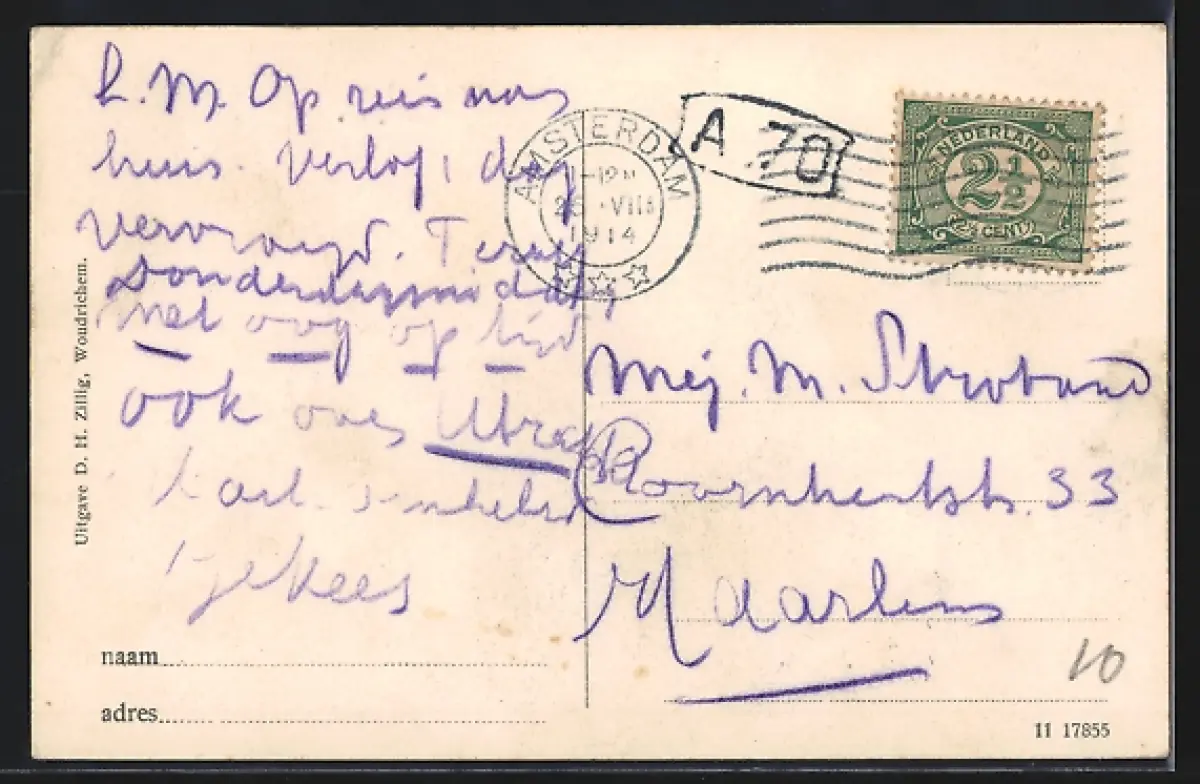 L.M. Op reis naar
huis. Verlof 1 dag
vervroegd. Terug
Donderdagmiddag,
net oog op tijd
ook over Utrecht
je Kees
Uitgave D. H. Zillig, Woudrichem.
naam
adres
AMSTERDAM
VIII
1914
A 70
NEDERLAND
2½
(2½ CENT)
Mej. M. Stroband
Coornhertstr. 33
Haarlem
10
11 17855